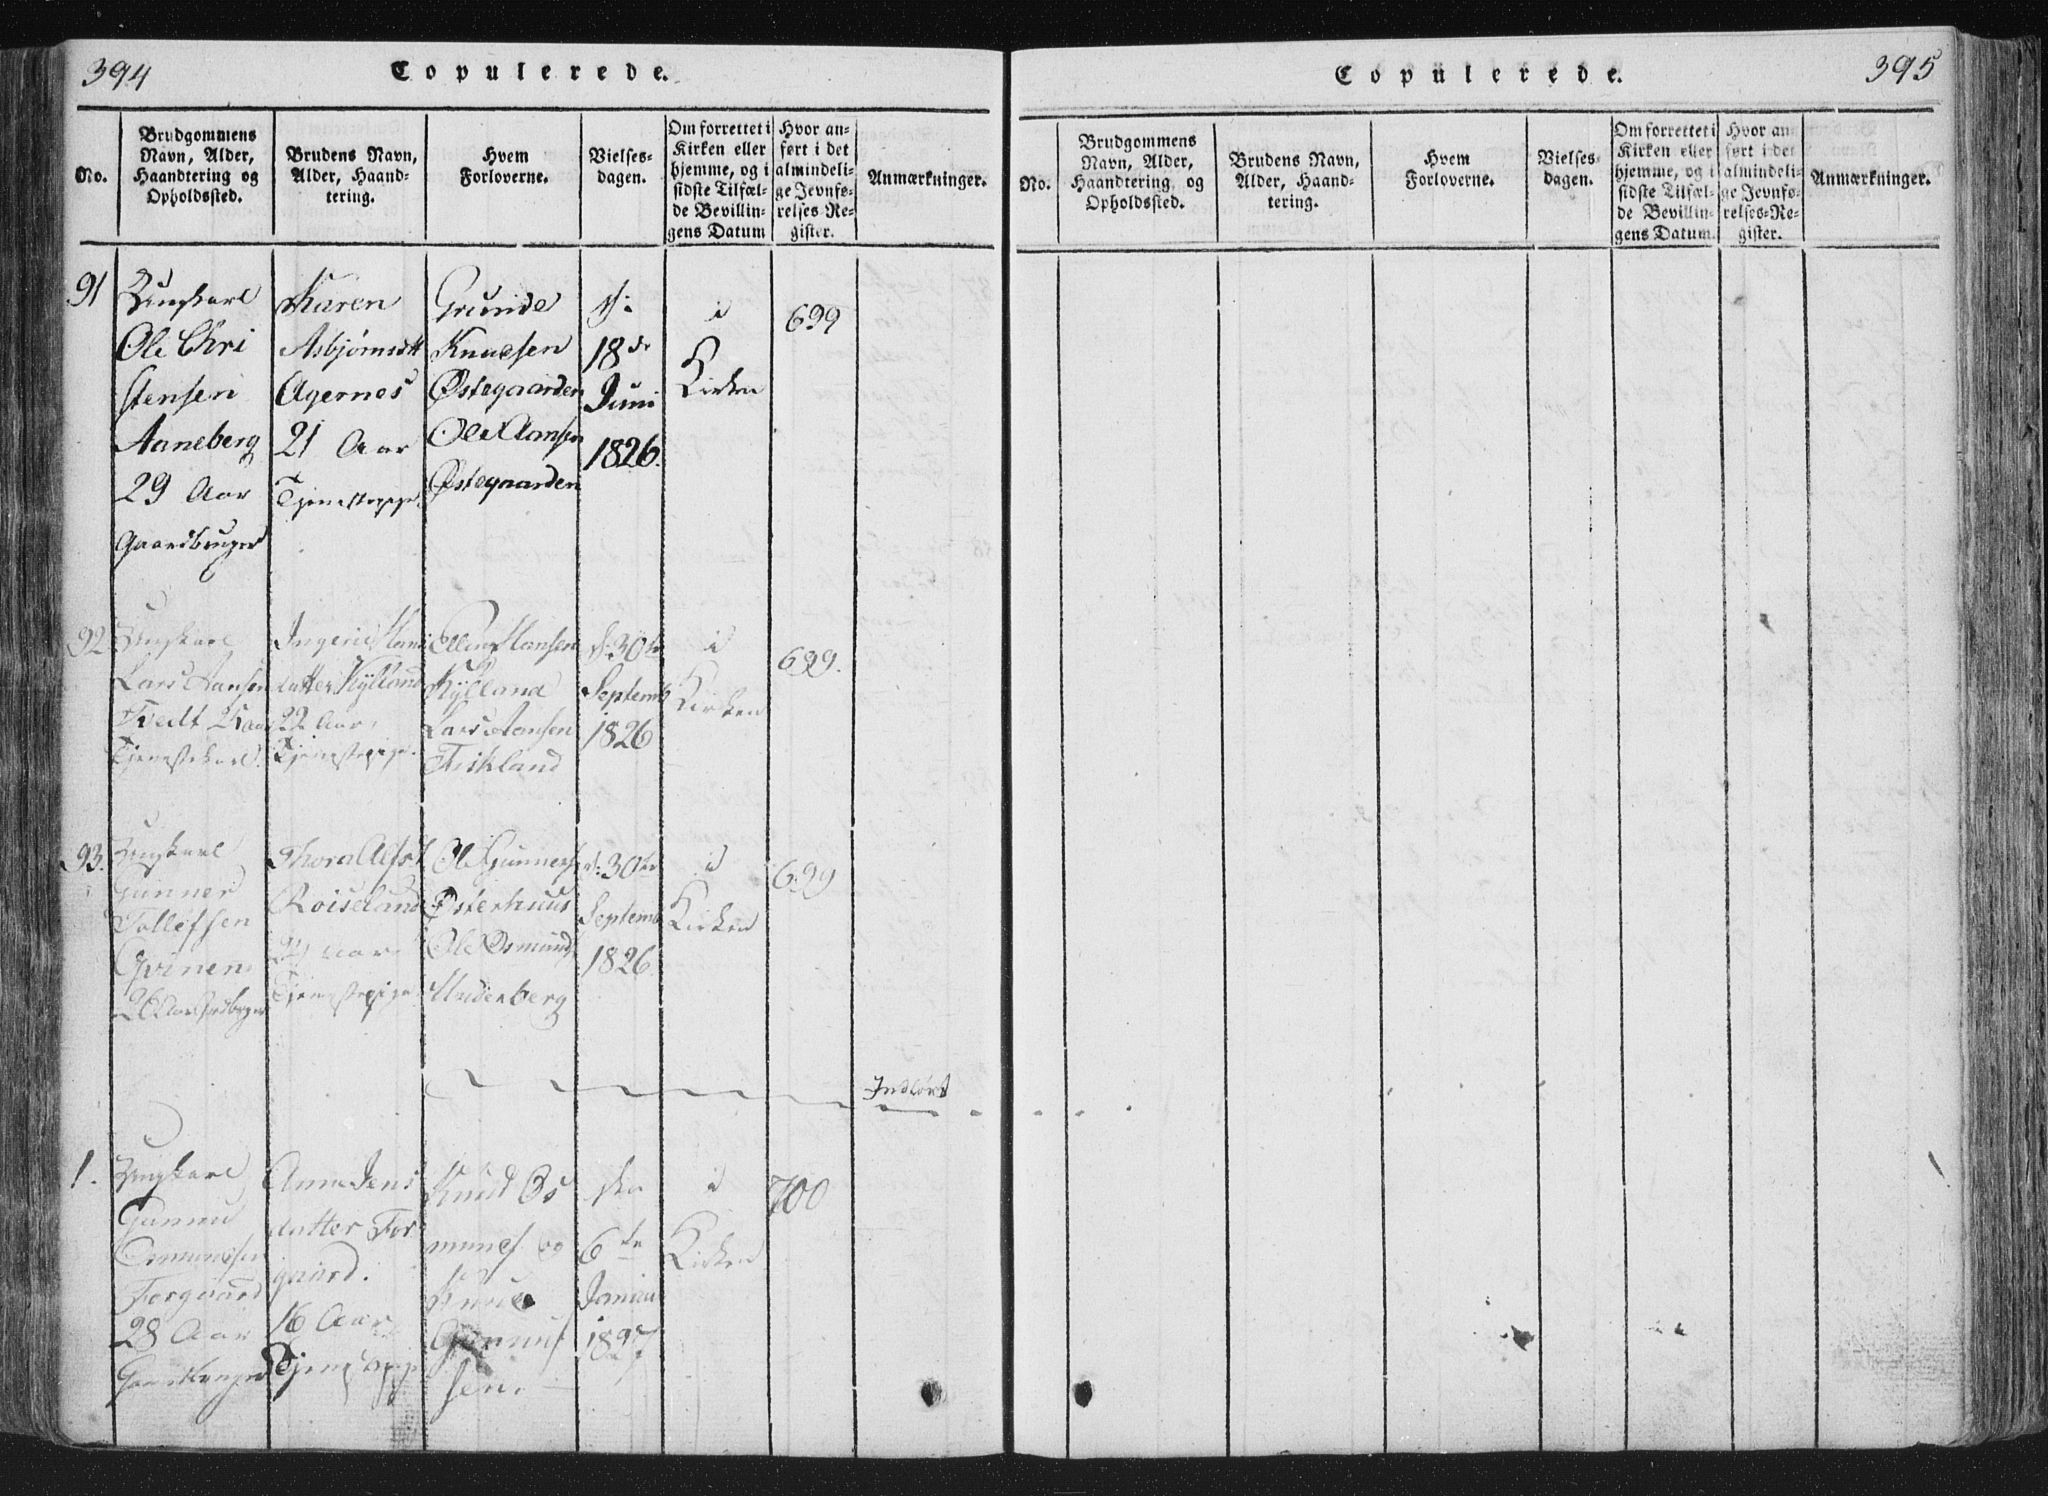 394
Copulerede.
No.
Brudgommens
Navn, Alder,
Haandtering og
Opholdssted.
Brudens Navn,
Alder, Haand-
tering.
Hvem
Forloverne.
Vielses-
dagen.
Om forrettet i
Kirken eller
hjemme, og i
sidste Tilfæl-
de Bevillin-
gens Datum
Hvor an-
ført i det
almindeli-
ge Jevnfø-
relses-Re-
gister.
Anmærkninger.
91
Ungkarl
Ole Chri
stensen
Aaneberg
29 Aar
Gaardbruger
Karen
Asbjørnsdtt
Agernes
21 Aar
Tjenestepige
Grunde
Knudsen
Østegaarden
Ole Aansen
Østegaarden
d:
18de
Juni
1826.
i
Kirken
699
92
Ungkarl
Lars Aansen
Tvedt
Tjenestekarl.
Ingerie Hans
datter Kylland
22 Aar
Tjenestepige.
Ellen Hansen
Kylland
Lars Aansen
Frikland
d: 30te
Septemb
1826
i
Kirken
699.
93.
Ungkarl
Gunner
Tollefsen
Qvinen
26 Aar
Thora
Roiseland
Aar
Tjenestepige
Ole Gunners
Østerhuus
Ole Osmunds
Underberg
d: 30te
Septemb
1826
i
Kirken
699
Indført
1.
Ungkarl
Gunnu
Osmundsen
Forgaard
28 Aar
Anna Jens
datter For
gaard.
16 Aar
Knud Os
munds og
Knud
sen.
den
6te
Januu
1827
i
Kirken
700
Copulerede.
395
No.
Brudgommens
Navn, Alder,
Haandtering og
Opholdssted.
Brudens Navn,
Alder, Haand-
tering.
Hvem
Forloverne.
Vielses-
dagen.
Om forrettet i
Kirken eller
hjemme, og i
sidste Tilfæl-
de Bevillin-
gens Datum.
Hvor an-
ført i det
almindeli-
ge Jevnfø-
relses-Re-
gister.
Anmærkninger.